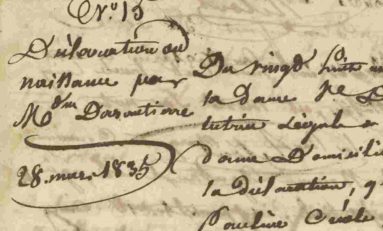 N.º 15
Déclaration de
naissance par
M.dm Darautiere
28. mars. 1835
Du vingt huit
la dame
tutrice légale
dame Domicili
la déclaration, q
Pauline Créole